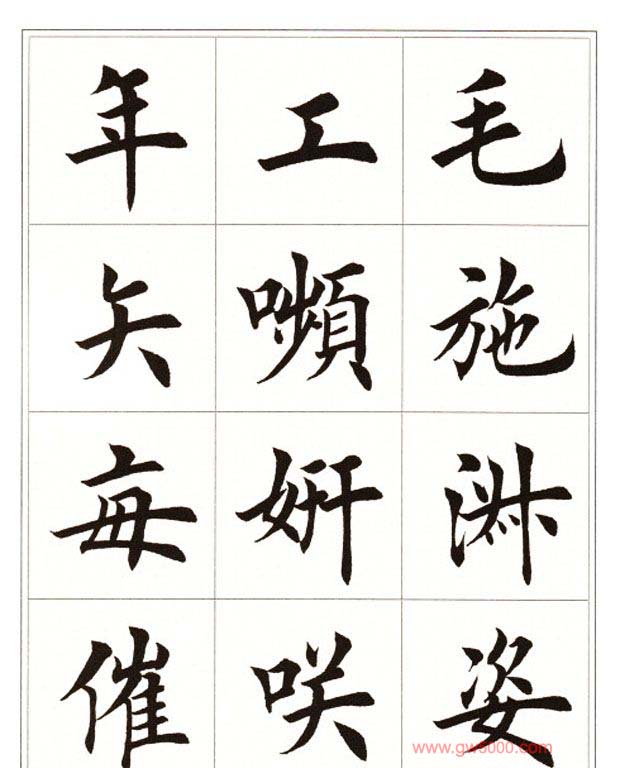 毛施淑姿
工嚬妍咲
年矢每催
www.gw5000.com